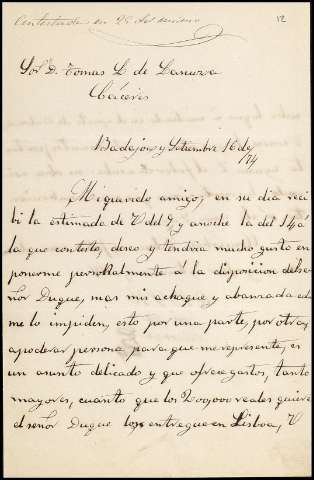 Contestada en 29 del mismo
12
Sor. D. Tomas L. de
Cáceres
Badajoz y Setiembre 16 de
/74
Mi querido amigo, en su dia reci
bi la estimada de V del 7, y anoche la del 14 á
la que contesto, deseo y tendria mucho gusto en
ponerme personalmente á la disposicion del se-
ñor Duque, mas mis achaque y abanzada eda
me lo impiden, esto por una parte, por otra,
apoderar persona para que me represente, es
un asunto delicado y que ofrece gastos, tanto
mayores, cuanto que los 200,000 reales quiere
el señor Duque los entregue en Lisboa, V